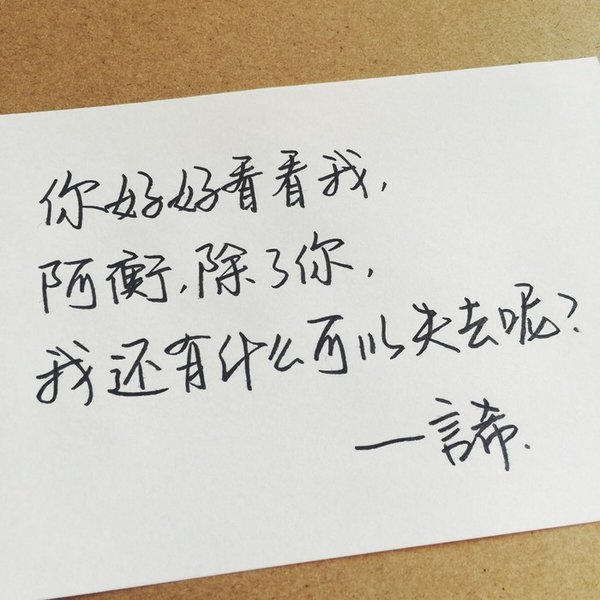 你好好看看我,
阿衡,除了你,
我还有什么可以失去呢?
—言希.